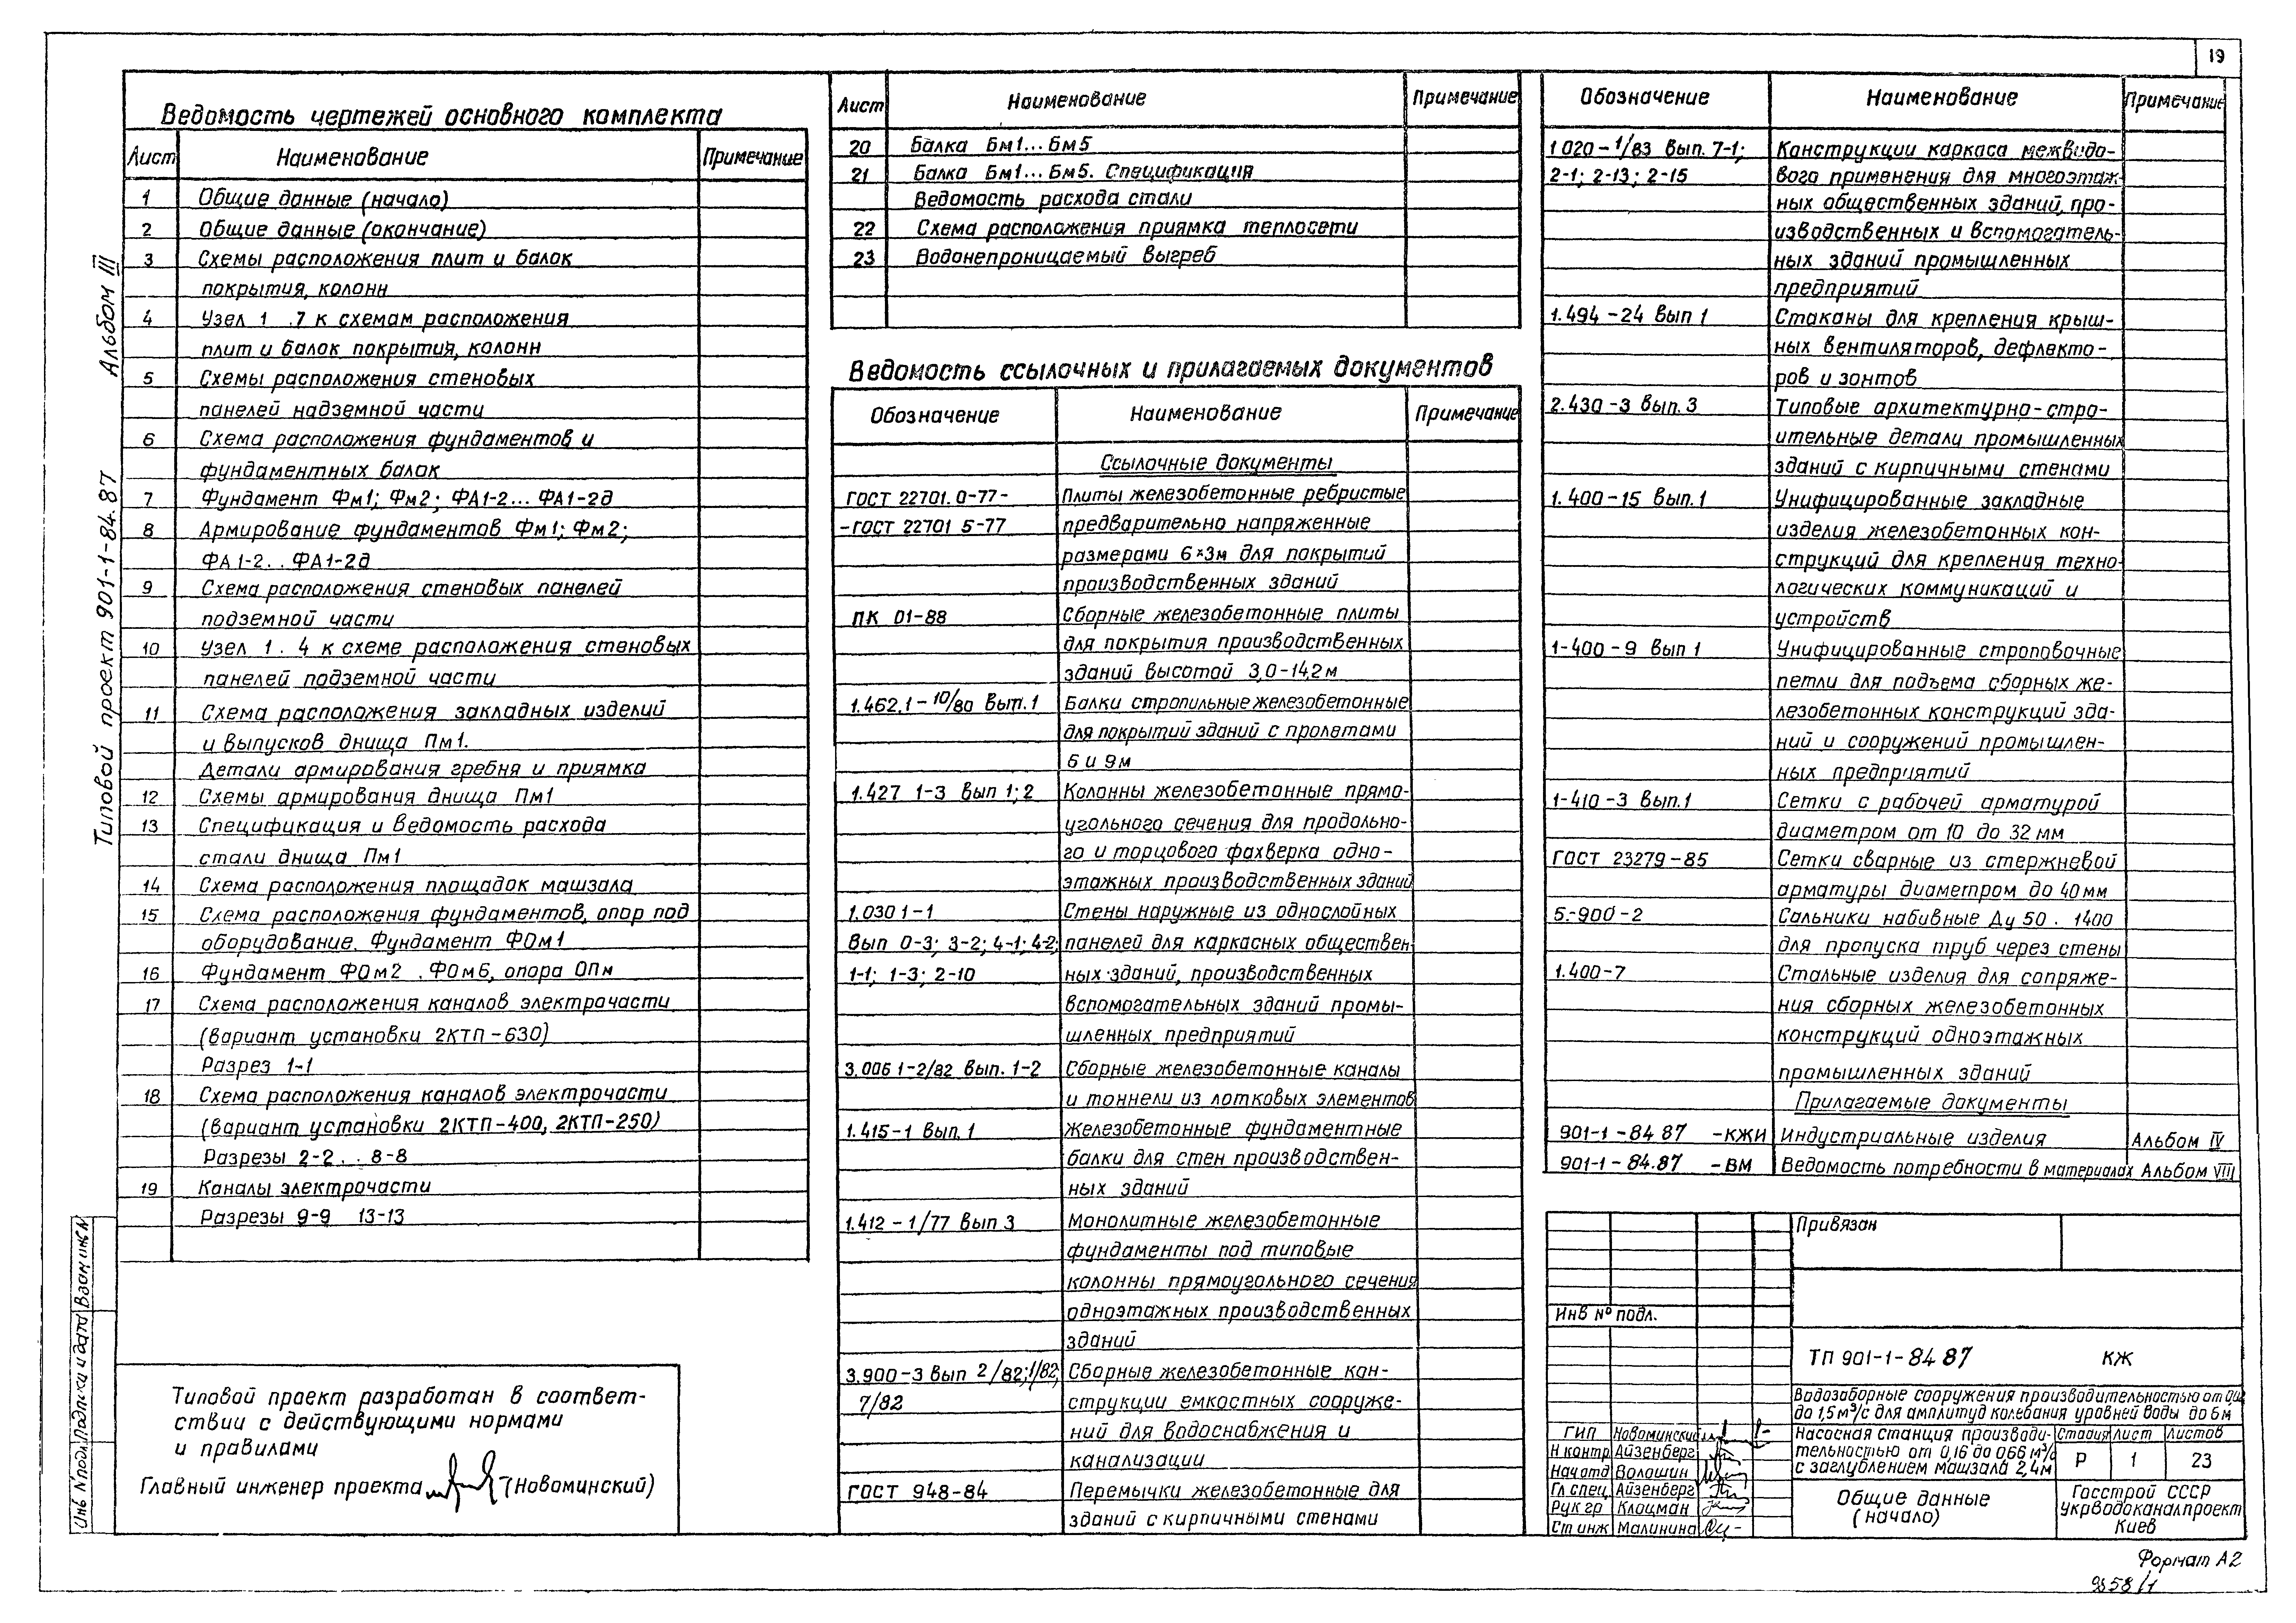 19
Альбом III
Типовой проект 901-1-84.87
Ведомость чертежей основного комплекта
Лист Наименование Примечание
1 Общие данные (начало)
2 Общие данные (окончание)
3 Схемы расположения плит и балок
покрытия, колонн
4 Узел 1 . 7 к схемам расположения
плит и балок покрытия, колонн
5 Схемы расположения стеновых
панелей надземной части
6 Схема расположения фундаментов и
фундаментных балок
7 Фундамент Фм1; Фм2; ФА1-2... ФА1-2д
8 Армирование фундаментов Фм1; Фм2;
ФА1-2. . ФА1-2д
9 Схема расположения стеновых панелей
подземной части
10 Узел 1 . 4 к схеме расположения стеновых
панелей подземной части
11 Схема расположения закладных изделий
и выпусков днища Пм1.
Детали армирования гребня и приямка
12 Схемы армирования днища Пм1
13 Спецификация и ведомость расхода
стали днища Пм1
14 Схема расположения площадок машзала
15 Схема расположения фундаментов, опор под
оборудование. Фундамент ФОм1
16 Фундамент ФОм2 . ФОм6, опора ОПм
17 Схема расположения каналов электрочасти
(вариант установки 2КТП-630)
Разрез 1-1
18 Схема расположения каналов электрочасти
(вариант установки 2КТП-400, 2КТП-250)
Разрезы 2-2 . . 8-8
19 Каналы электрочасти
Разрезы 9-9 13-13
Типовой проект разработан в соответ-
ствии с действующими нормами
и правилами
Главный инженер проекта (Новоминский)
Взам инв N
Подпись и дата
Инв N подл.
Лист Наименование Примечание
20 Балка Бм1... Бм5
21 Балка Бм1... Бм5. Спецификация
Ведомость расхода стали
22 Схема расположения приямка теплосети
23 Водонепроницаемый выгреб
Ведомость ссылочных и прилагаемых документов
Обозначение Наименование Примечание
Ссылочные документы
ГОСТ 22701.0-77- Плиты железобетонные ребристые
-ГОСТ 22701 5-77 предварительно напряженные
размерами 6×3м для покрытий
производственных зданий
ПК 01-88 Сборные железобетонные плиты
для покрытия производственных
зданий высотой 3,0-14,2м
1.462.1-10/80 Вып.1 Балки стропильные железобетонные
для покрытий зданий с пролетами
6 и 9м
1.427 1-3 вып 1; 2 Колонны железобетонные прямо-
угольного сечения для продольно-
го и торцового фахверка одно-
этажных производственных зданий
1.030 1-1 Стены наружные из однослойных
Вып 0-3; 3-2; 4-1; 4-2; панелей для каркасных обществен-
1-1; 1-3; 2-10 ных зданий, производственных
вспомогательных зданий промы-
шленных предприятий
3.006 1-2/82 Вып. 1-2 Сборные железобетонные каналы
и тоннели из лотковых элементов
1.415-1 Вып.1 Железобетонные фундаментные
балки для стен производствен-
ных зданий
1.412-1/77 Вып 3 Монолитные железобетонные
фундаменты под типовые
колонны прямоугольного сечения
одноэтажных производственных
зданий
3.900-3 вып 2/82; 1/82; Сборные железобетонные кон-
7/82 струкции емкостных сооруже-
ний для водоснабжения и
канализации
ГОСТ 948-84 Перемычки железобетонные для
зданий с кирпичными стенами
Обозначение Наименование Примечание
1 020-1/83 вып. 7-1; Конструкции каркаса межвидо-
2-1; 2-13; 2-15 вого применения для многоэтаж-
ных общественных зданий, про-
изводственных и вспомогатель-
ных зданий промышленных
предприятий
1.494-24 вып 1 Стаканы для крепления крыш-
ных вентиляторов, дефлекто-
ров и зонтов
2.430-3 вып.3 Типовые архитектурно-стро-
ительные детали промышленных
зданий с кирпичными стенами
1.400-15 вып.1 Унифицированные закладные
изделия железобетонных кон-
струкций для крепления техно-
логических коммуникаций и
устройств
1-400-9 вып 1 Унифицированные строповочные
петли для подъема сборных же-
лезобетонных конструкций зда-
ний и сооружений промышлен-
ных предприятий
1-410-3 Вып.1 Сетки с рабочей арматурой
диаметром от 10 до 32 мм
ГОСТ 23279-85 Сетки сварные из стержневой
арматуры диаметром до 40мм
5.-900-2 Сальники набивные Ду 50 . 1400
для пропуска труб через стены
1.400-7 Стальные изделия для сопряже-
ния сборных железобетонных
конструкций одноэтажных
промышленных зданий
Прилагаемые документы
901-1-84 87 -КЖИ Индустриальные изделия Альбом IV
901-1-84.87 -ВМ Ведомость потребности в материалах Альбом VIII
Привязан
Инв № подл.
ТП 901-1-84 87 КЖ
Водозаборные сооружения производительностью от
до 1,5м³/с для амплитуд колебания уровней воды до 6м
ГИП Новоминский
Н.контр Айзенберг
Нач отд Волошин
Гл спец Айзенберг
Рук гр Клоцман
Ст инж Малинина
Насосная станция производи-
тельностью от 0,16 до 0,66 м³/с
с заглублением машзала 2,4м
Стадия Лист Листов
Р 1 23
Общие данные
(начало)
Госстрой СССР
Укрводоканалпроект
Киев
Формат А2
9858/1